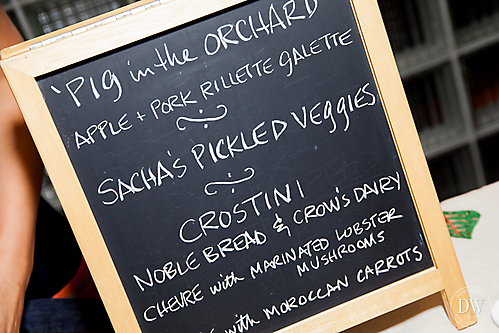 'PIG in the ORCHARD
APPLE + PORK RILLETTE GALETTE
SACHA'S PICKLED VEGGIES
CROSTINI
NOBLE BREAD & CROW'S DAIRY
CHEVRE with MARINATED LOBSTER
MUSHROOMS
with MOROCCAN CARROTS
DW